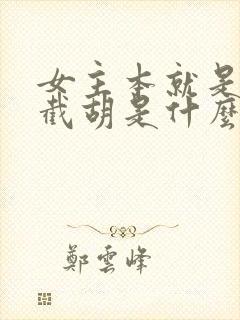 女主本就是
截胡是什麼
鄭雲峰